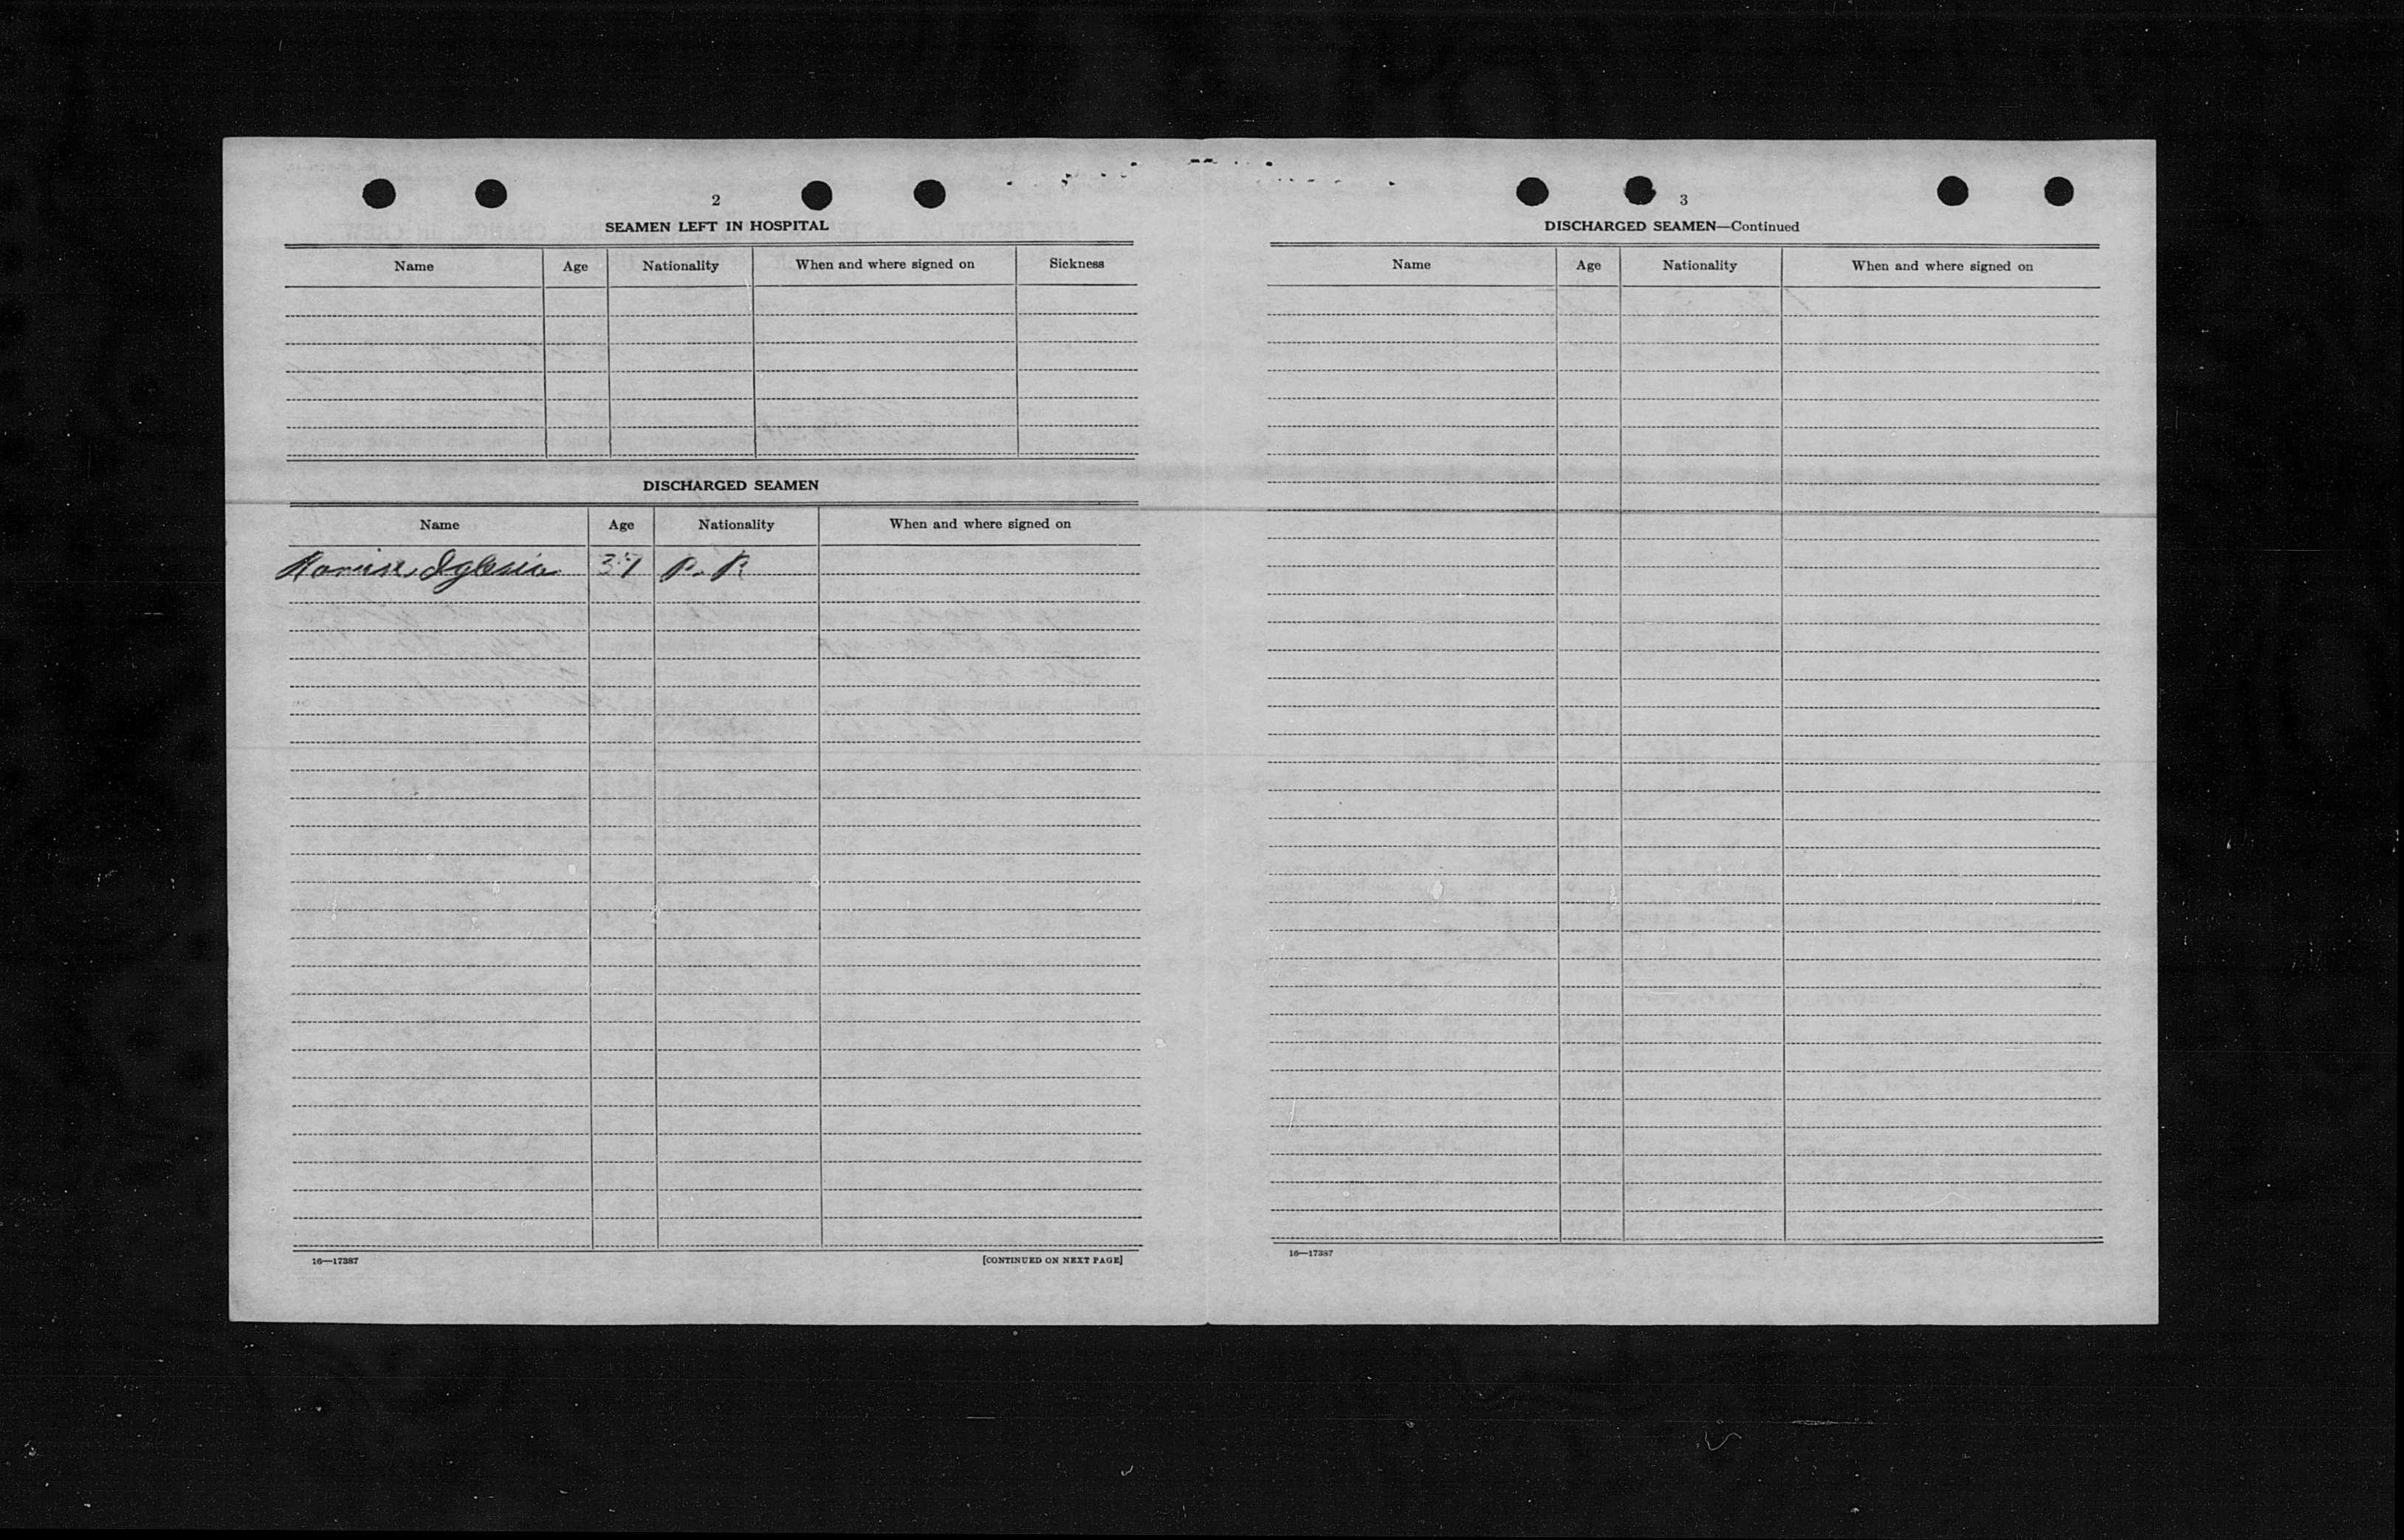 2
SEAMEN LEFT IN HOSPITAL
Name Age Nationality When and where signed on Sickness
DISCHARGED SEAMEN
Name Age Nationality When and where signed on
Iglesia P. R.
16—17387 [CONTINUED ON NEXT PAGE]
3
DISCHARGED SEAMEN—Continued
Name Age Nationality When and where signed on
16—17387